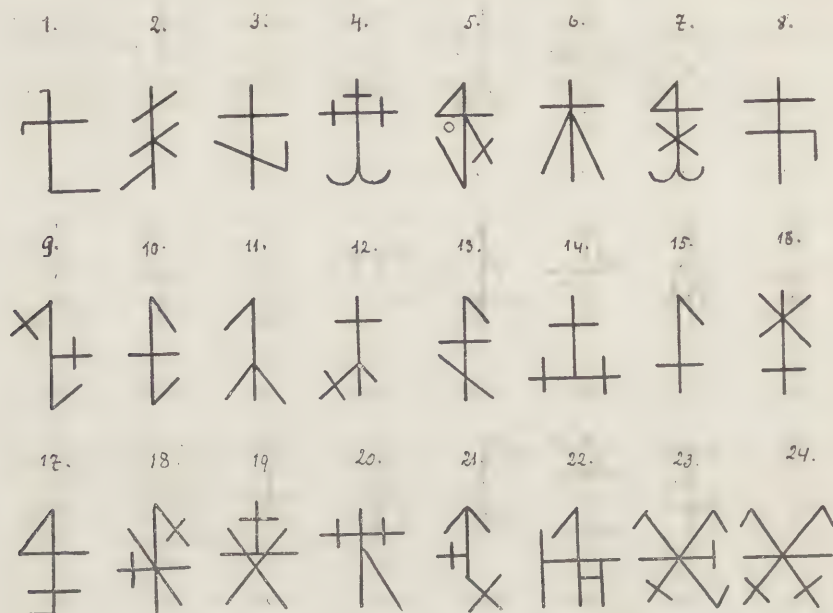 1. 2. 3. 4. 5. 6. 7. 8.
9. 10. 11. 12. 13. 14. 15. 16.
17. 18. 19 20. 21. 22. 23. 24.